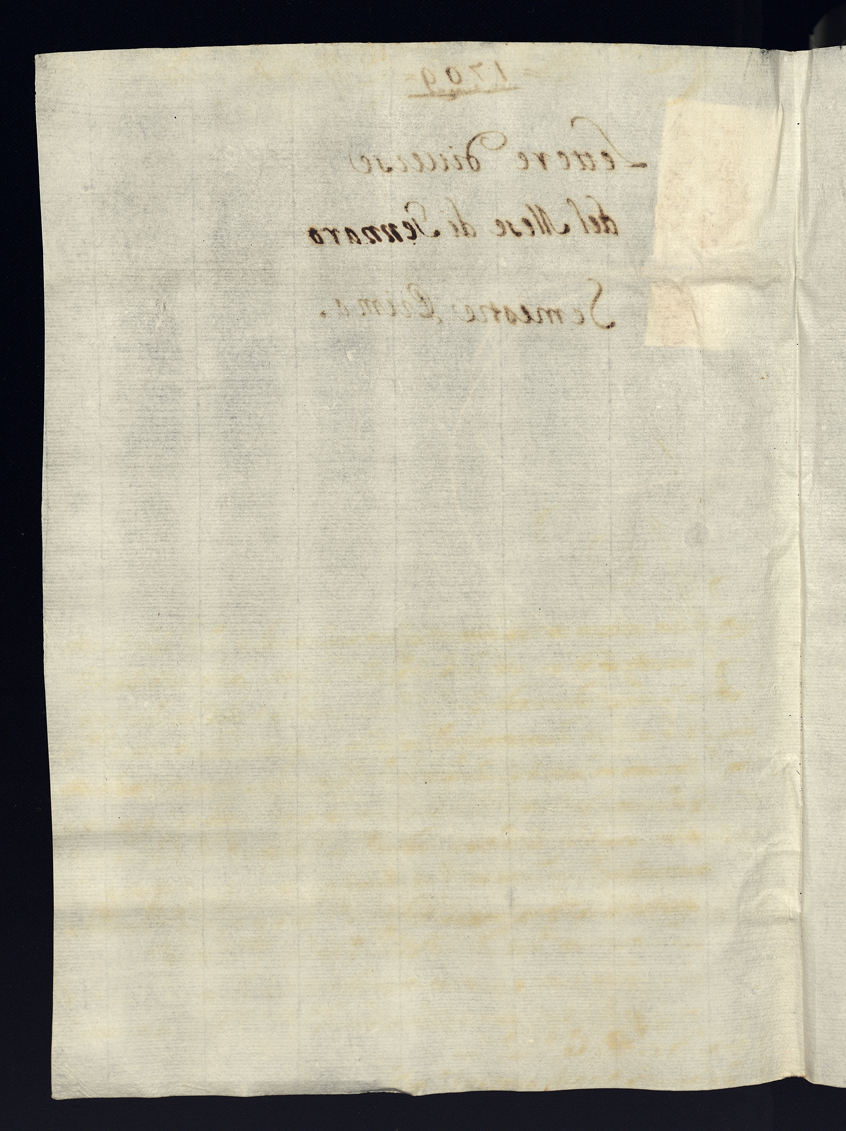 1709
Lettere diverse
del Mese di Gennaro
Semestre Primo.